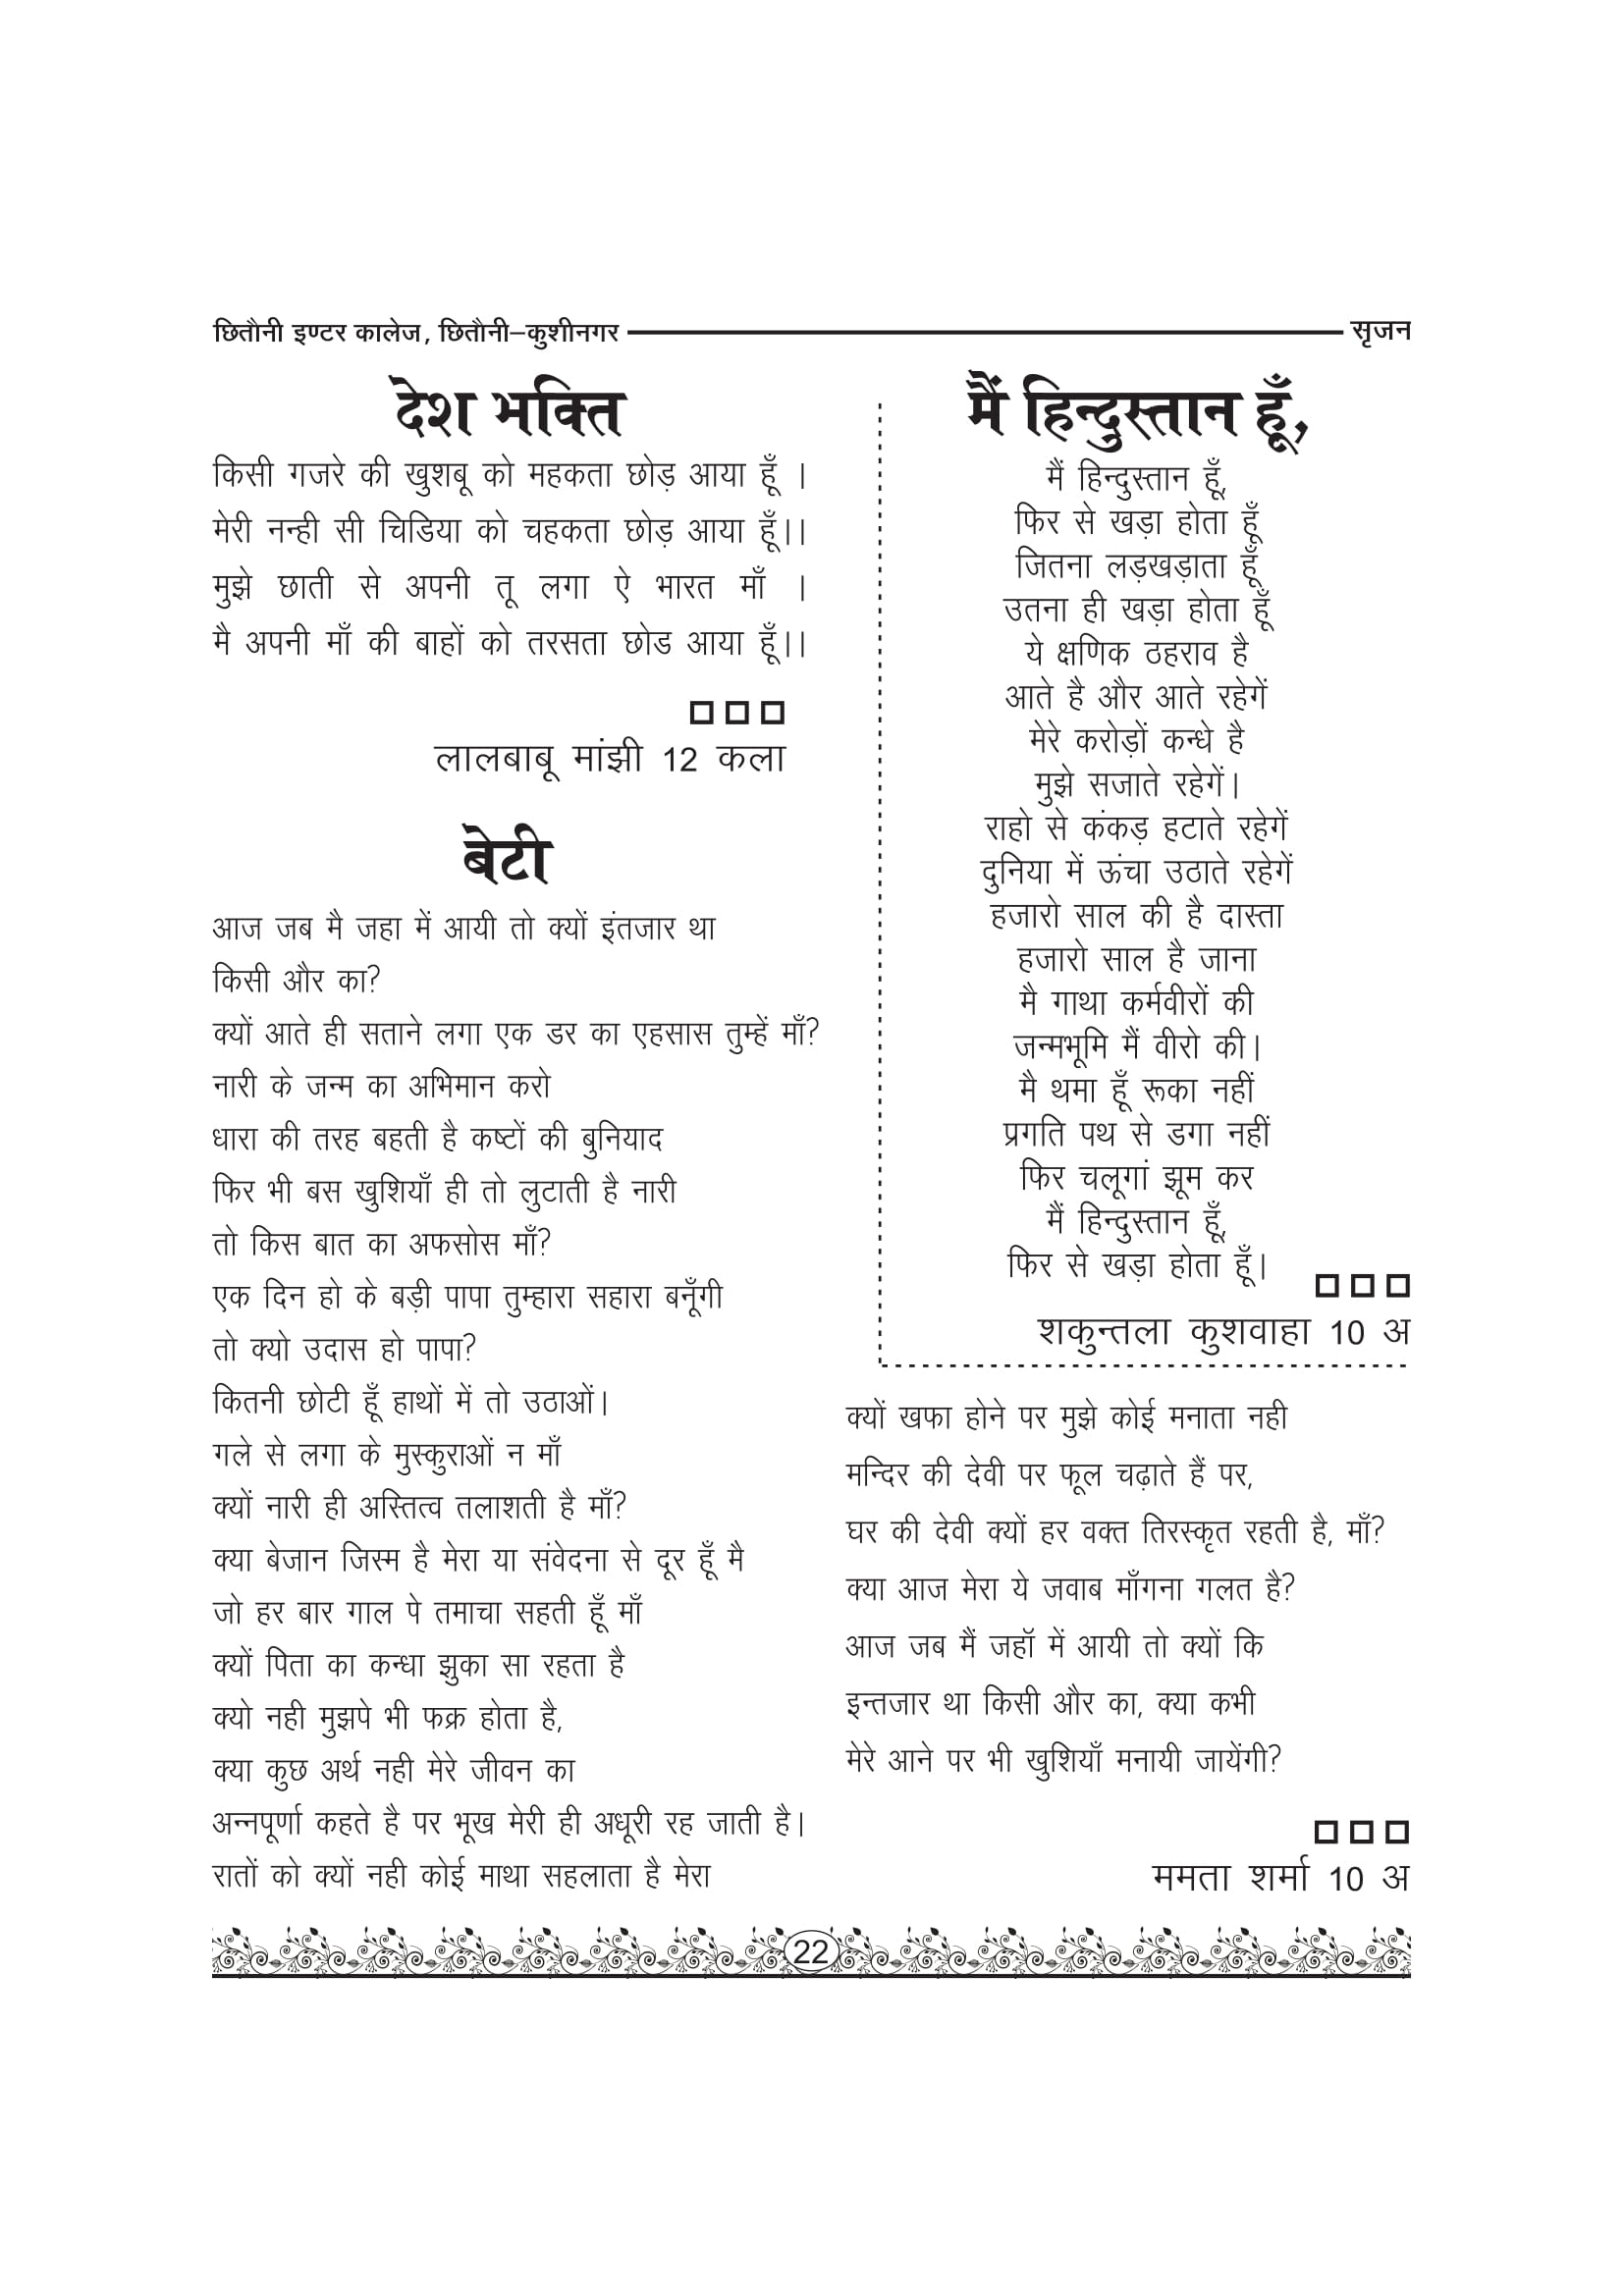 छितौनी इण्टर कालेज, छितौनी–कुशीनगर सृजन
देश भक्ति
किसी गजरे की खुशबू को महकता छोड़ आया हूँ ।
मेरी नन्ही सी चिडिया को चहकता छोड़ आया हूँ।।
मुझे छाती से अपनी तू लगा ऐ भारत माँ ।
मै अपनी माँ की बाहों को तरसता छोड आया हूँ।।
लालबाबू मांझी 12 कला
मैं हिन्दुस्तान हूँ,
मैं हिन्दुस्तान हूँ,
फिर से खड़ा होता हूँ
जितना लड़खड़ाता हूँ
उतना ही खड़ा होता हूँ
ये क्षणिक ठहराव है
आते है और आते रहेगें
मेरे करोड़ों कन्धे है
मुझे सजाते रहेगें।
राहो से कंकड़ हटाते रहेगें
दुनिया में ऊंचा उठाते रहेगें
हजारो साल की है दास्ता
हजारो साल है जाना
मै गाथा कर्मवीरों की
जन्मभूमि मैं वीरो की।
मै थमा हूँ रूका नहीं
प्रगति पथ से डगा नहीं
फिर चलूगां झूम कर
मैं हिन्दुस्तान हूँ,
फिर से खड़ा होता हूँ।
शकुन्तला कुशवाहा 10 अ
बेटी
आज जब मै जहा में आयी तो क्यों इंतजार था
किसी और का?
क्यों आते ही सताने लगा एक डर का एहसास तुम्हें माँ?
नारी के जन्म का अभिमान करो
धारा की तरह बहती है कष्टों की बुनियाद
फिर भी बस खुशियाँ ही तो लुटाती है नारी
तो किस बात का अफसोस माँ?
एक दिन हो के बड़ी पापा तुम्हारा सहारा बनूँगी
तो क्यो उदास हो पापा?
कितनी छोटी हूँ हाथों में तो उठाओं।
गले से लगा के मुस्कुराओं न माँ
क्यों नारी ही अस्तित्व तलाशती है माँ?
क्या बेजान जिस्म है मेरा या संवेदना से दूर हूँ मै
जो हर बार गाल पे तमाचा सहती हूँ माँ
क्यों पिता का कन्धा झुका सा रहता है
क्यो नही मुझपे भी फक्र होता है,
क्या कुछ अर्थ नही मेरे जीवन का
अन्नपूर्णा कहते है पर भूख मेरी ही अधूरी रह जाती है।
रातों को क्यों नही कोई माथा सहलाता है मेरा
क्यों खफा होने पर मुझे कोई मनाता नही
मन्दिर की देवी पर फूल चढ़ाते हैं पर,
घर की देवी क्यों हर वक्त तिरस्कृत रहती है, माँ?
क्या आज मेरा ये जवाब माँगना गलत है?
आज जब मैं जहॉ में आयी तो क्यों कि
इन्तजार था किसी और का, क्या कभी
मेरे आने पर भी खुशियाँ मनायी जायेंगी?
ममता शर्मा 10 अ
22